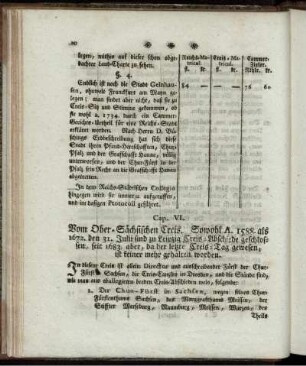 liegen, weiter auf dieser schon abge-
druckter Land-Charte zu sehen.
§. 4.
Endlich ist noch die Stadt Gelnhau-
sen, ohnweit Franckfurt am Mayn gele-
gen; man findet aber nicht, daß sie zu
Creis-Sitz und Stimme gekommen, ob
sie wohl a. 1734. durch ein Cammer-
Gerichts-Urtheil für eine Reichs-Stadt
erkläret worden. Nach Herrn D. Bü-
schings Erdbeschreibung hat sich diese
Stadt ihren Pfand-Herrschafften, Chur-
Pfalz und der Grafschafft Hanau völlig
unterworfen, und der
Pfalz der Grafschafft Hanau
In dem Reichs-Städtischen Collegio
hingegen wird sie annoch aufgeruffen,
und im dasigen Protocoll geführet.
Reichs-Ma-
tricul.
fl. kr.
Creis-Ma-
tricul.
fl. kr.
Cammer-
Zieler.
Rthlr. kr.
84 —
76 60
Cap. VI.
Vom Ober-Sächsischen Creis. Sowohl A. 1538. als
1672. den 31. Julii sind zu Leipzig Creis-Abschiede geschlos-
sen, seit 1683. aber, da der letzte Creis-Tag gewesen,
ist keiner mehr gehalten worden.
In diesem Creis ist allein Director und ausschreibender Fürst der Chur-
Fürst zu Sachsen, die Creis-Cantzley in Dresden, und die Stände sind,
wie man aus oballegirten beyden Creis-Abschieden weiß, folgende:
1. Der Chur-Fürst in Sachsen, wegen seines Chur-
Fürstenthums Sachsen, des Marggrafthums Meissen, der
Stiffter Merseburg, Naumburg, Meissen, Wurzen, des
Theils